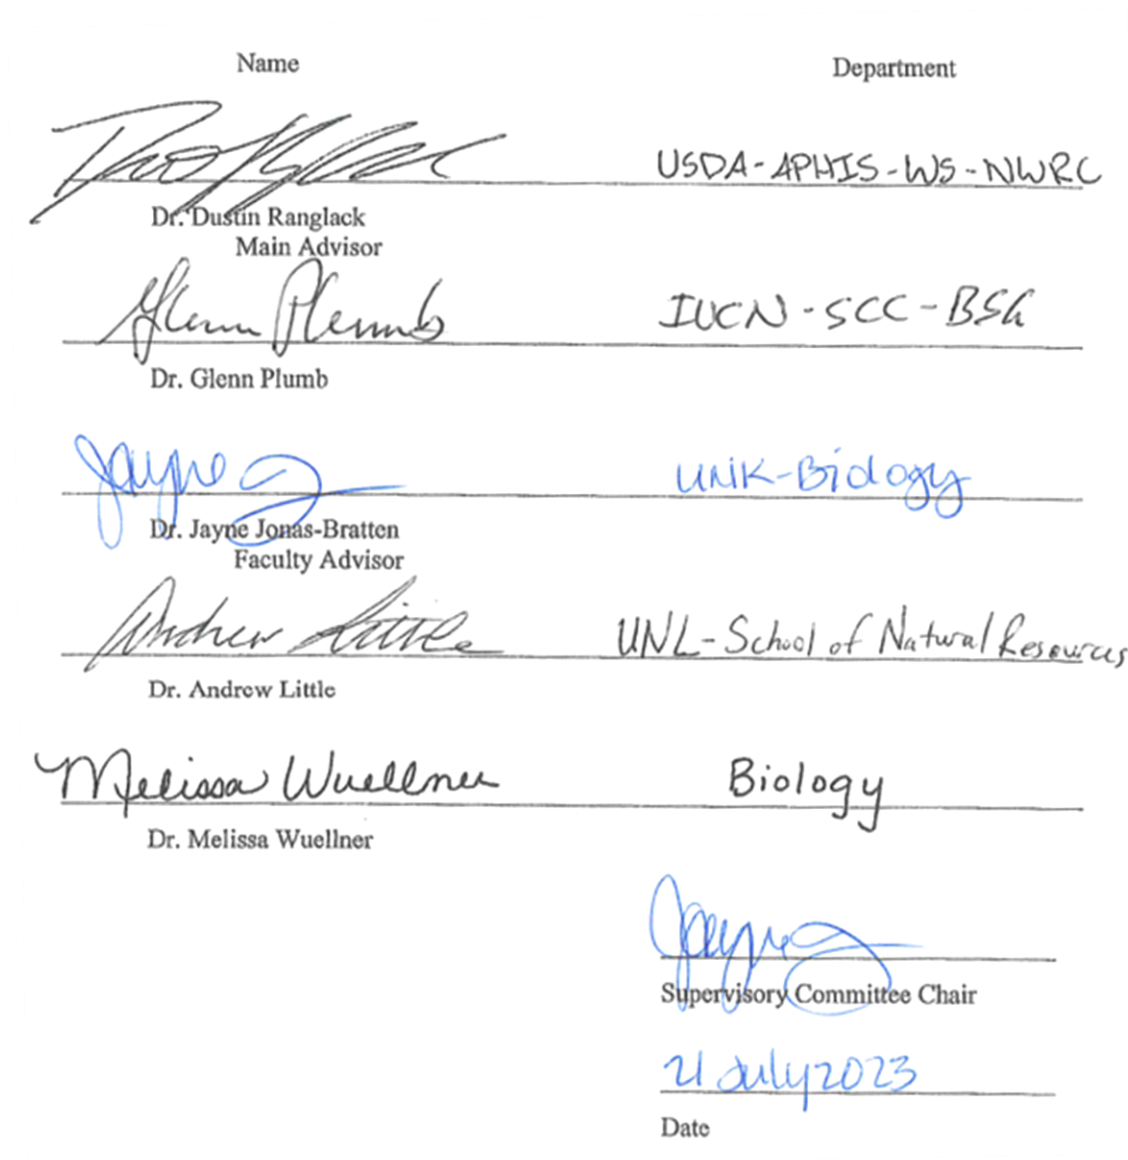 Name Department
USDA-APHIS-WS-NWRC
Dr. Dustin Ranglack
Main Advisor
Glenn Plumb IUCN-SCC-BSG
Dr. Glenn Plumb
Jayne UNK-Biology
Dr. Jayne Jonas-Bratten
Faculty Advisor
Andrew Little UNL-School of Natural Resources
Dr. Andrew Little
Melissa Wuellner Biology
Dr. Melissa Wuellner
Jayne
Supervisory Committee Chair
21 July 2023
Date